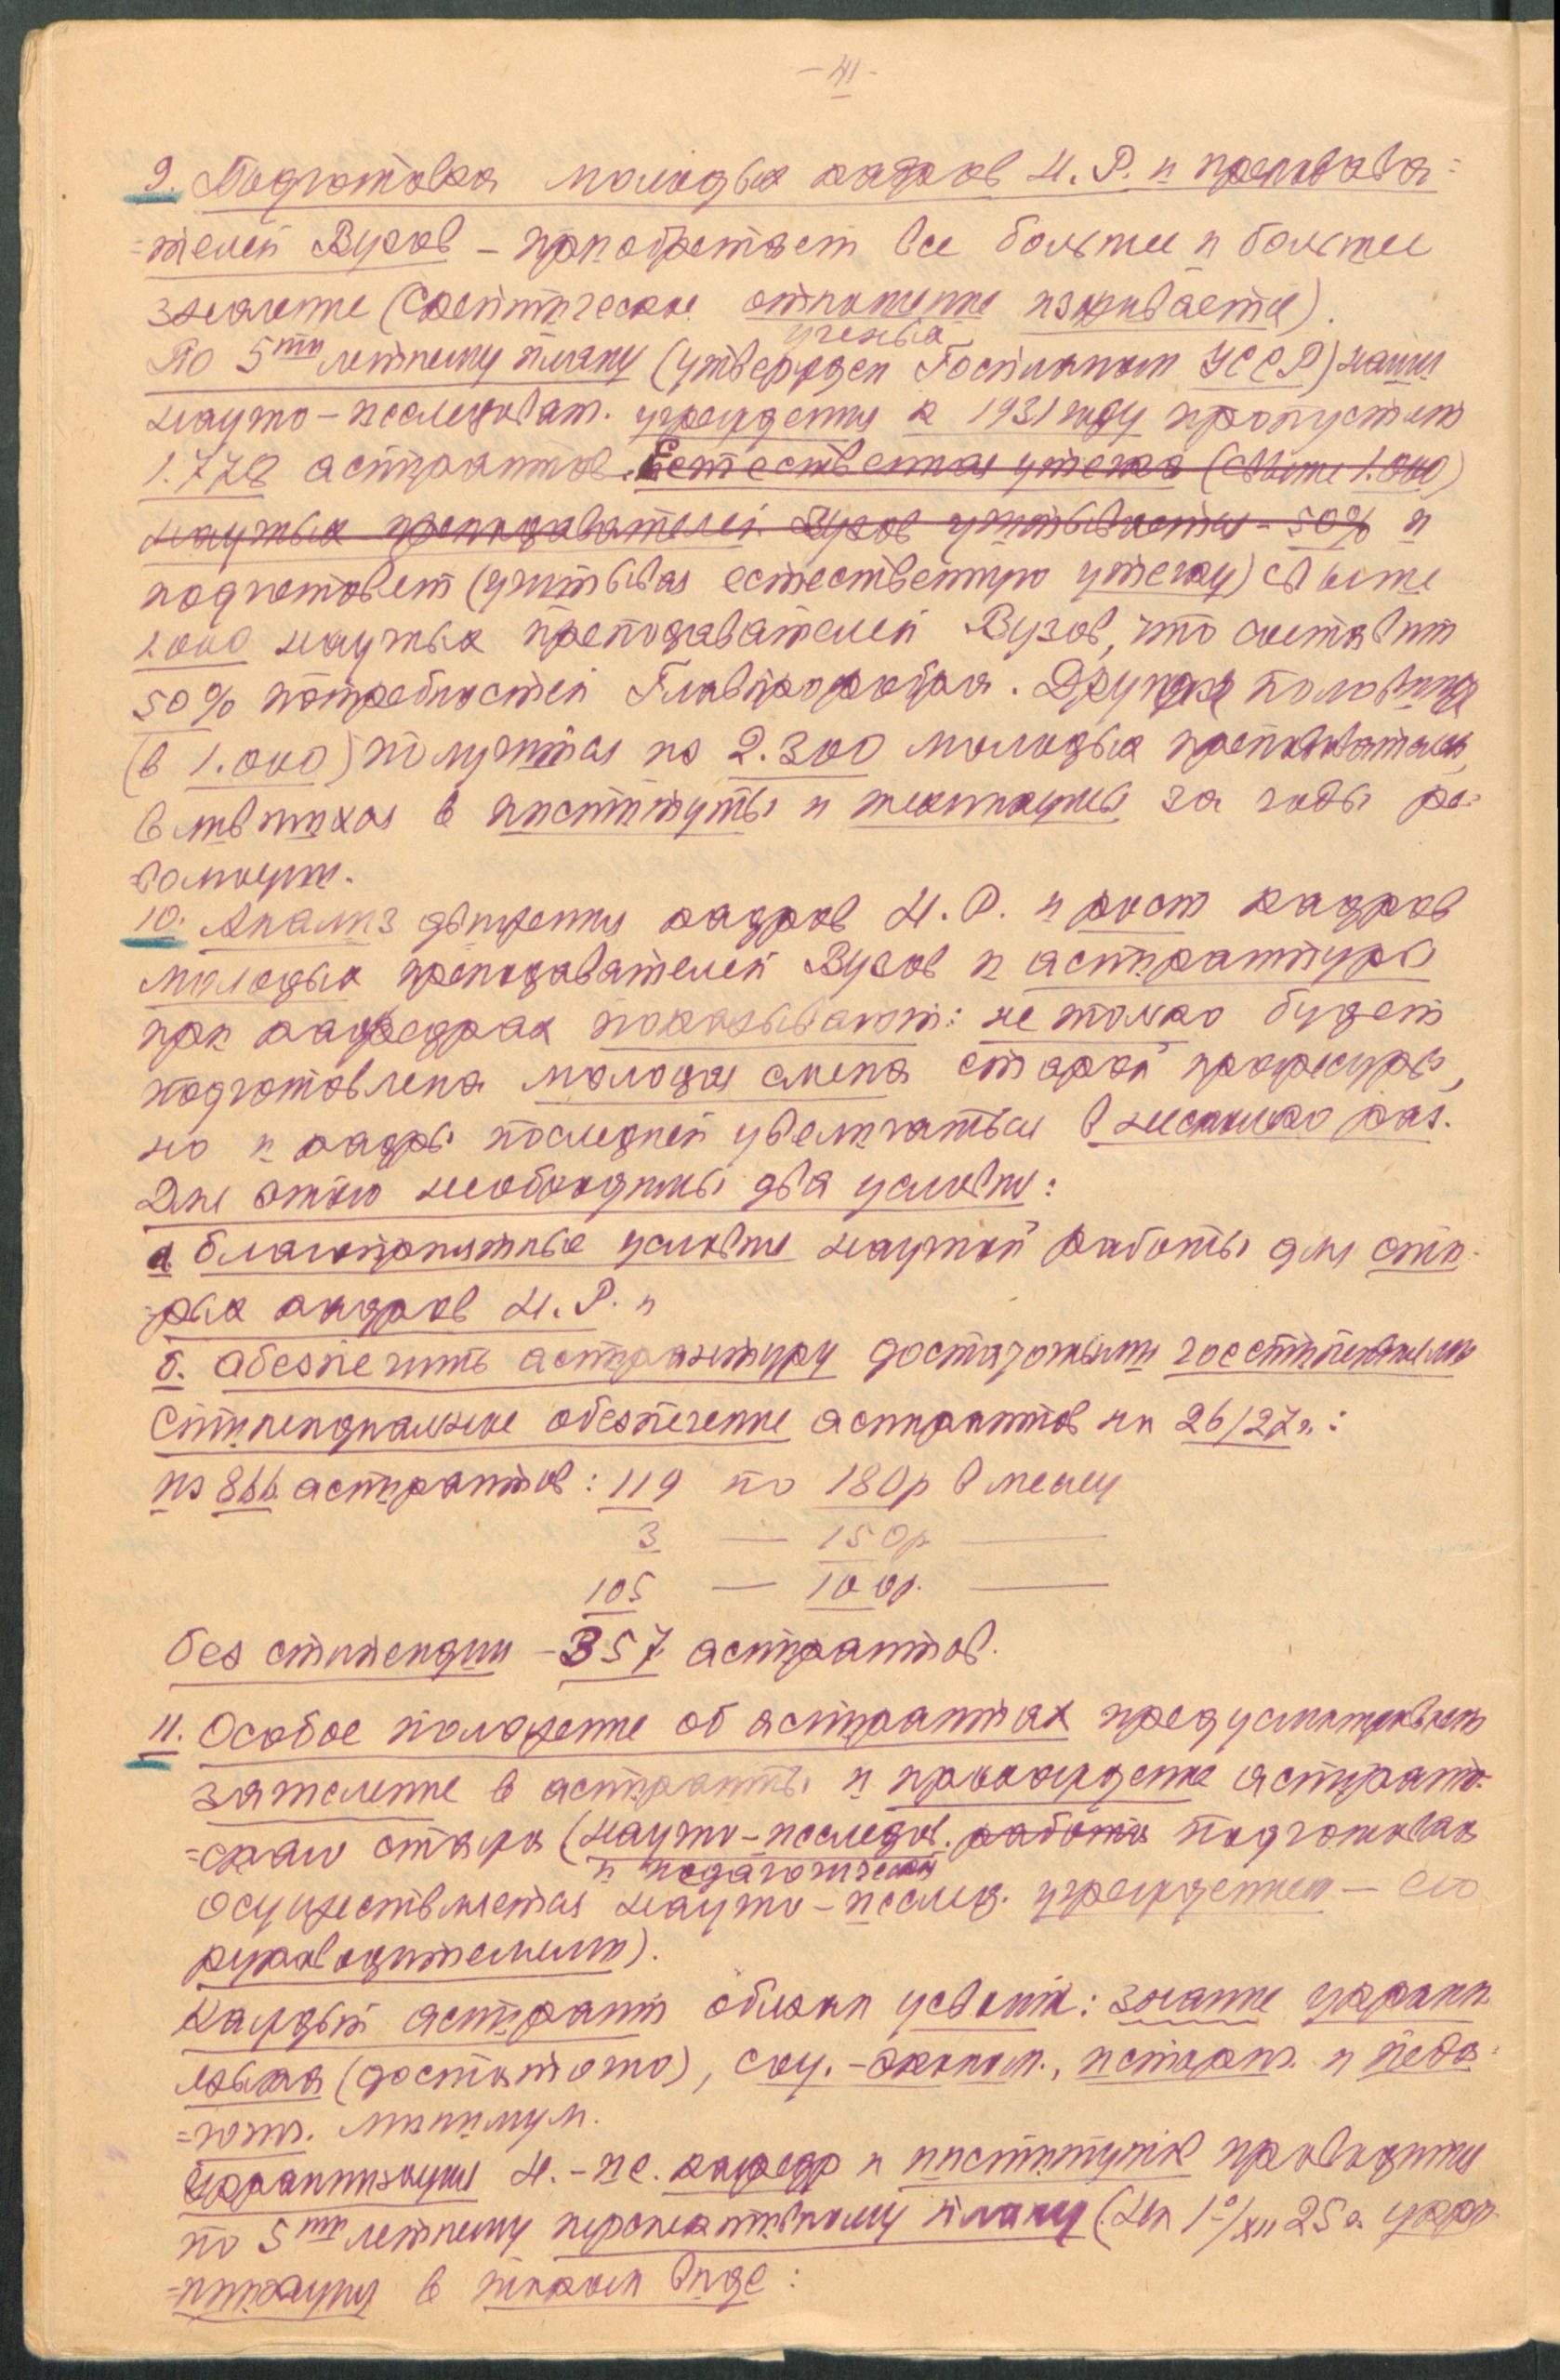 - 41 -
9. Подготовка молодых кадров Н. Р. и преподава=
=телей Вузов - приобретает все больше и больше
значение (скептическое отношение изживается).
ученый
По 5ти летнему плану (утвержден Госпланом УССР) наши
научно-исследоват. учреждения к 1931 году пропустят
1.778 аспирантов. Естественная утечка (свыше 1.000)
научных преподавателей Вузов учитывается - 50% и
подготовят (учитывая естественную утечку) свыше
1.000 научных преподавателей Вузов, что составит
50% потребностей Главпрофобра. Другая половина
(в 1.000) получится из 2.300 молодых преподавателей,
влившихся в институты и техникумы за годы ре=
=волюции.
10. Анализ движения кадров Н. Р. и рост кадров
молодых преподавателей Вузов и аспирантура
при кафедрах показывают: не только будет
подготовлена молодая смена старой профессуры,
но и кадры последней увеличатся в несколько раз.
Для этого необходимы два условия:
а. благоприятные условия научной работы для ста=
=рых кадров Н. Р. и
б. обеспечить аспирантуру достаточными госстипендиями
Стипендиальное обеспечение аспирантов на 26/27 г.:
из 866 аспирантов: 119 по 180 р в месяц
3 — 150 р. —
105 — 100 р. —
без стипендии - 357 аспирантов.
11. Особое положение об аспирантах предусматривает
зачисление в аспиранты и прохождение аспирант=
=ского стажа (научно-исследов. работа подготовка
и педагогическая
осуществляется научно-исслед. учреждением - его
руководителями).
Каждый аспирант обязан усвоить: знание украин.
языка (достаточно), соц.-эконом., историч. и педа=
=гогич. минимум.
Украинизация Н.-ис. кафедр и институтов проводится
по 5ти летнему перспективному плану (на 1º/XII 25 г. украи=
=низация в таком виде: